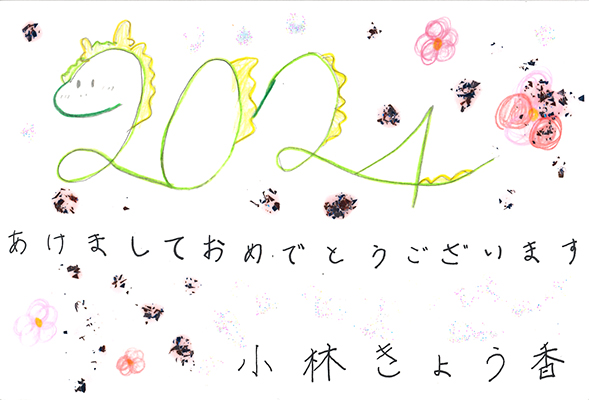 2024
あけましておめでとうございます
小林きょう香